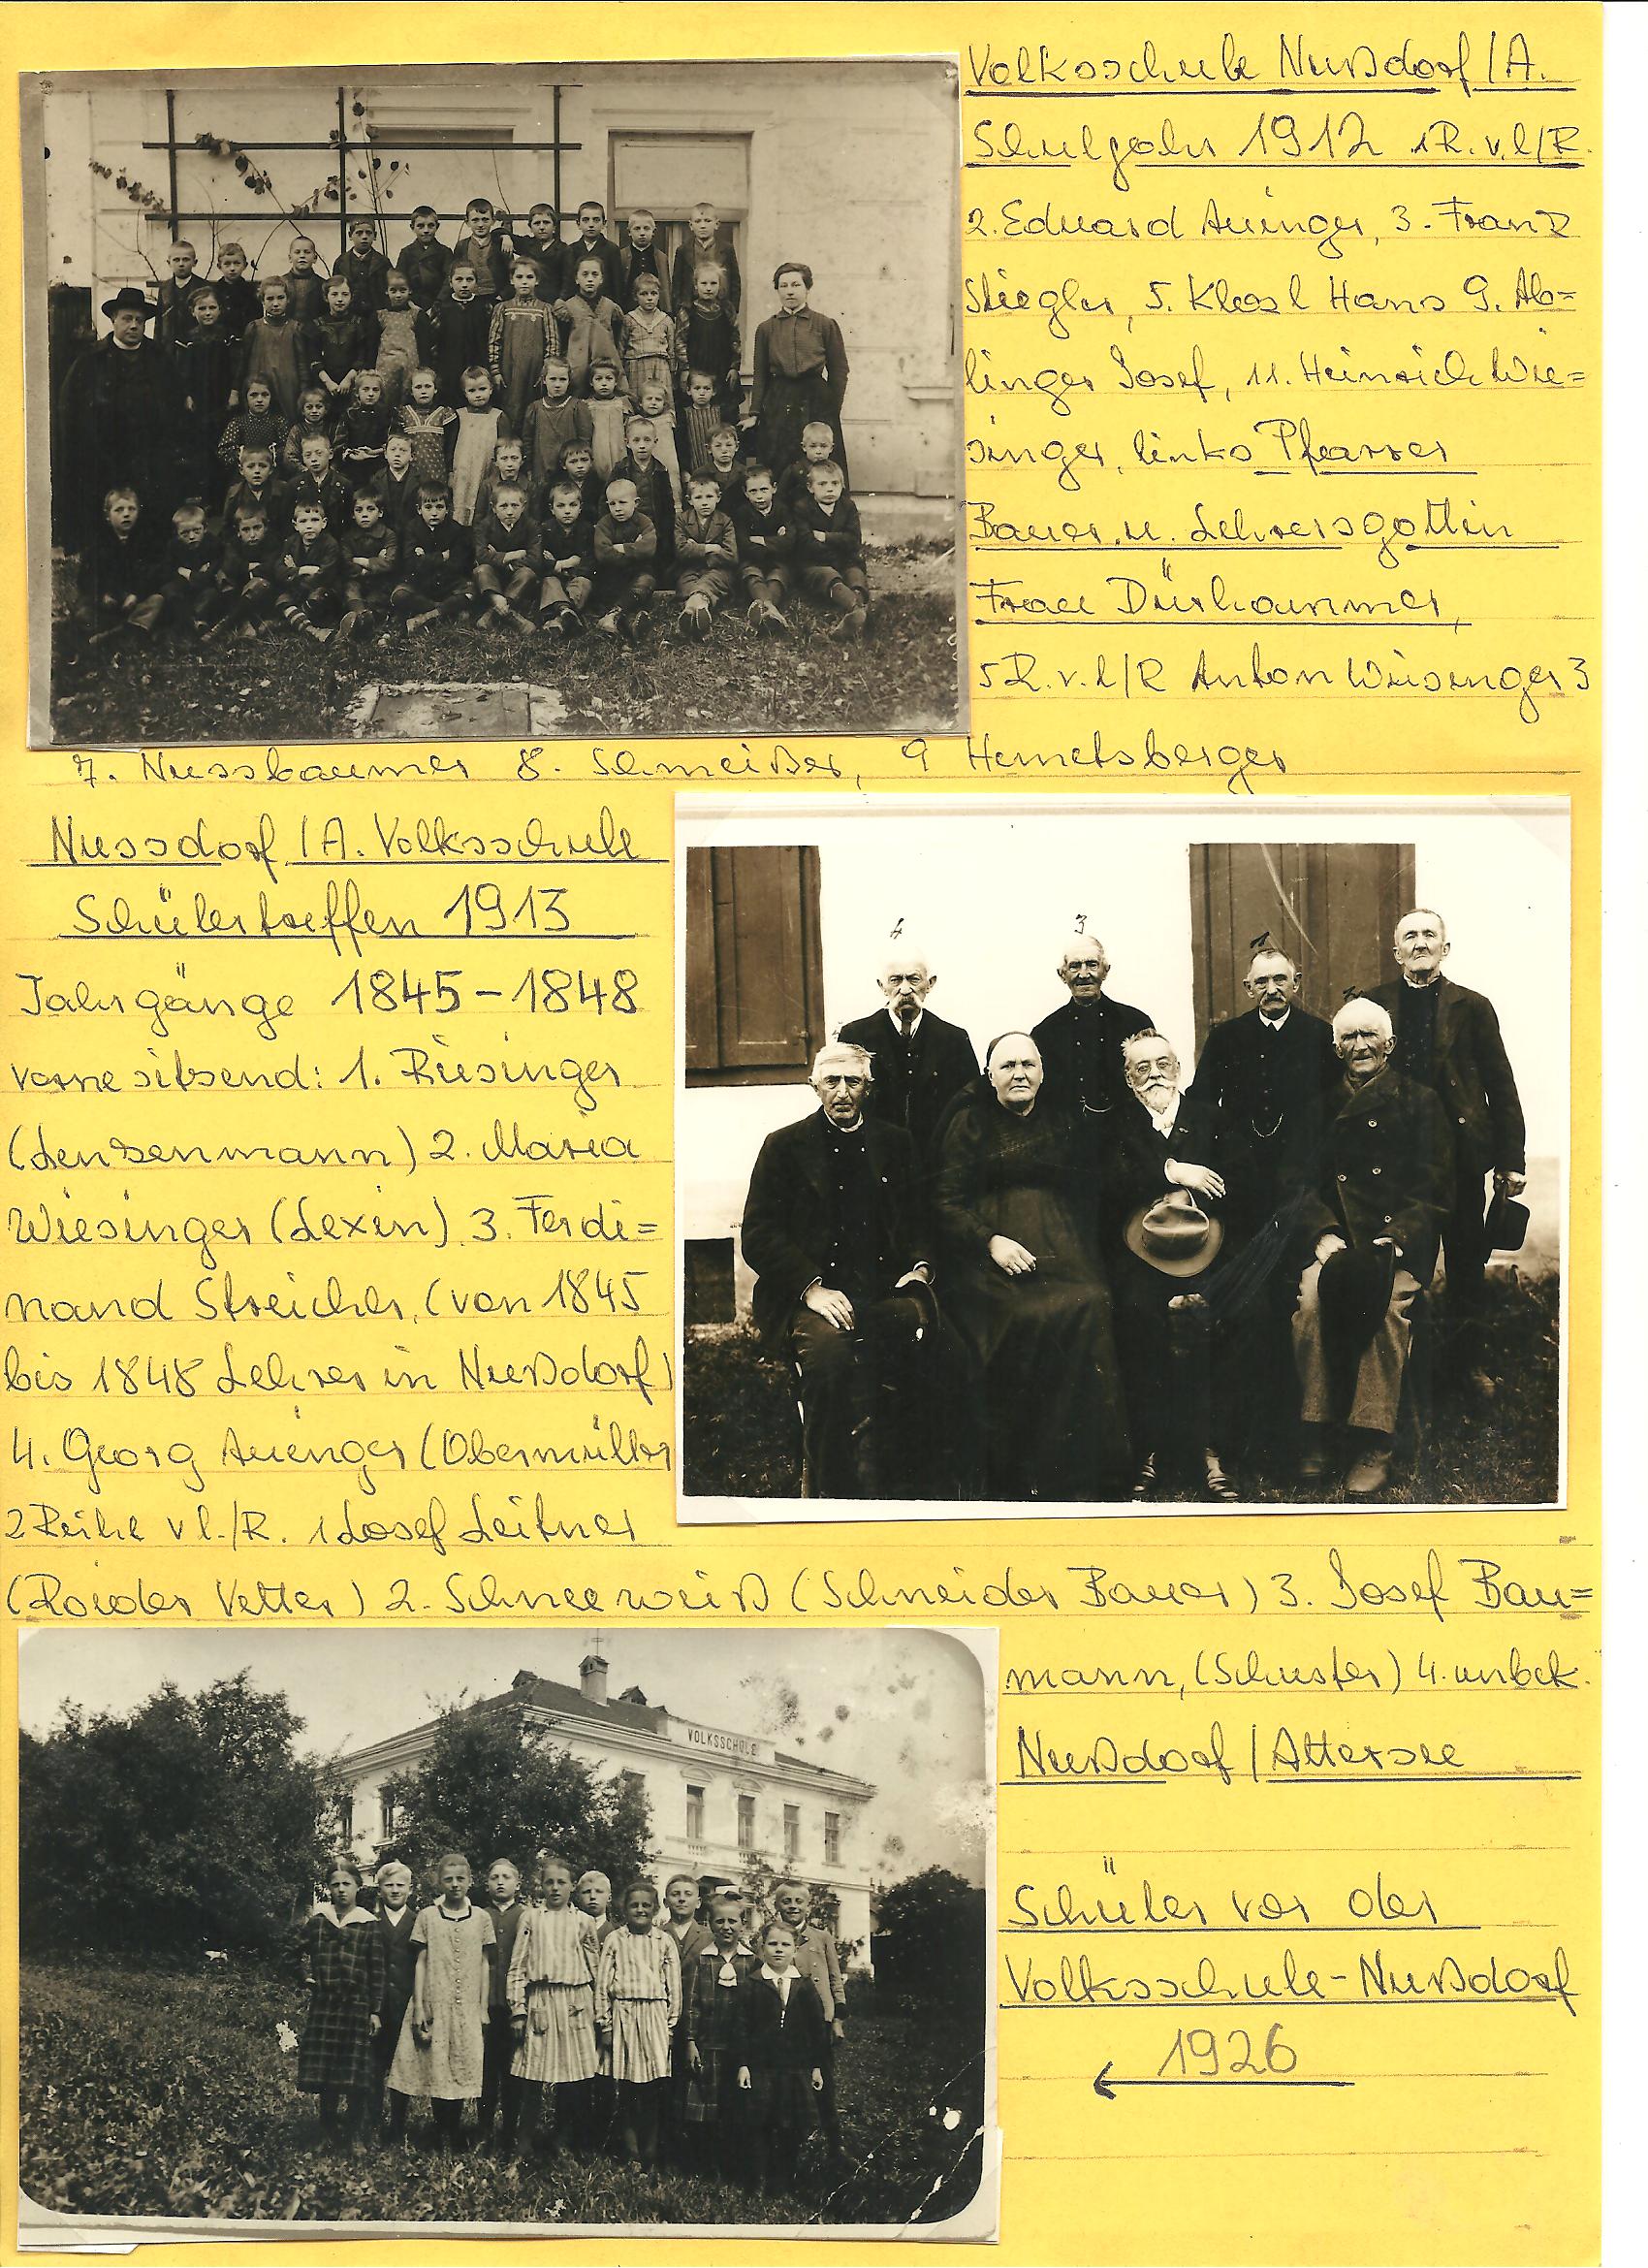 Volksschule Nußdorf/A.
Schuljahr 1912 1R. v. l/R.
2. Eduard Auinger, 3. Franz
Stiegler, 5. Klosl Hans 9. Ab=
linger Josef, 11. Heinrich Wie=
singer, links Pfarrer
Bauer, u. Lehrersgattin
Frau Dürhammer,
5R. v. l/R Anton Wiesinger 3
7. Nussbaumer 8. Schmeißer, 9 Hemetsberger
Nussdorf/A. Volksschule
Schülertreffen 1913
Jahrgänge 1845-1848
vorne sitzend: 1. Riesinger
(Lenzenmann) 2. Maria
Wiesinger (Lexin), 3. Ferdi=
nand Streicher, (von 1845
bis 1848 Lehrer in Nußdorf)
4. Georg Auinger (Obermüller
2 Reihe v l./R. 1 Josef Leitner
(Roider Vetter) 2. Schneeweiß (Schneider Bauer) 3. Josef Bau=
mann, (Schuster) 4. unbek.
4
3
1
VOLKSSCHULE
Nußdorf/Attersee
Schüler vor der
Volksschule-Nußdorf
1926